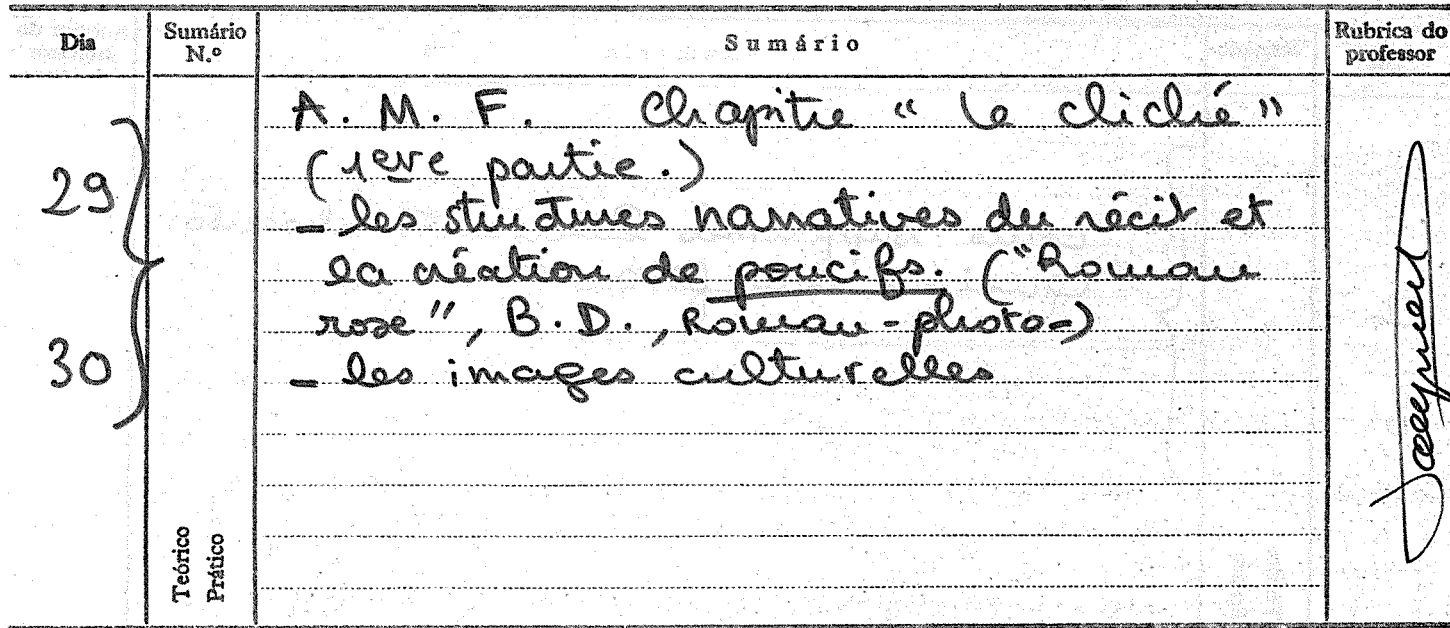 Dia
Sumário
N.º
Sumário
Rubrica do
professor
A. M. F. Chapitre " le cliché "
(1ere partie.)
29
- les structures narratives du récit et
la création de poncifs. ("Roman
rose", B.D., Roman-photo-)
30
- les images culturelles
Teórico
Prático